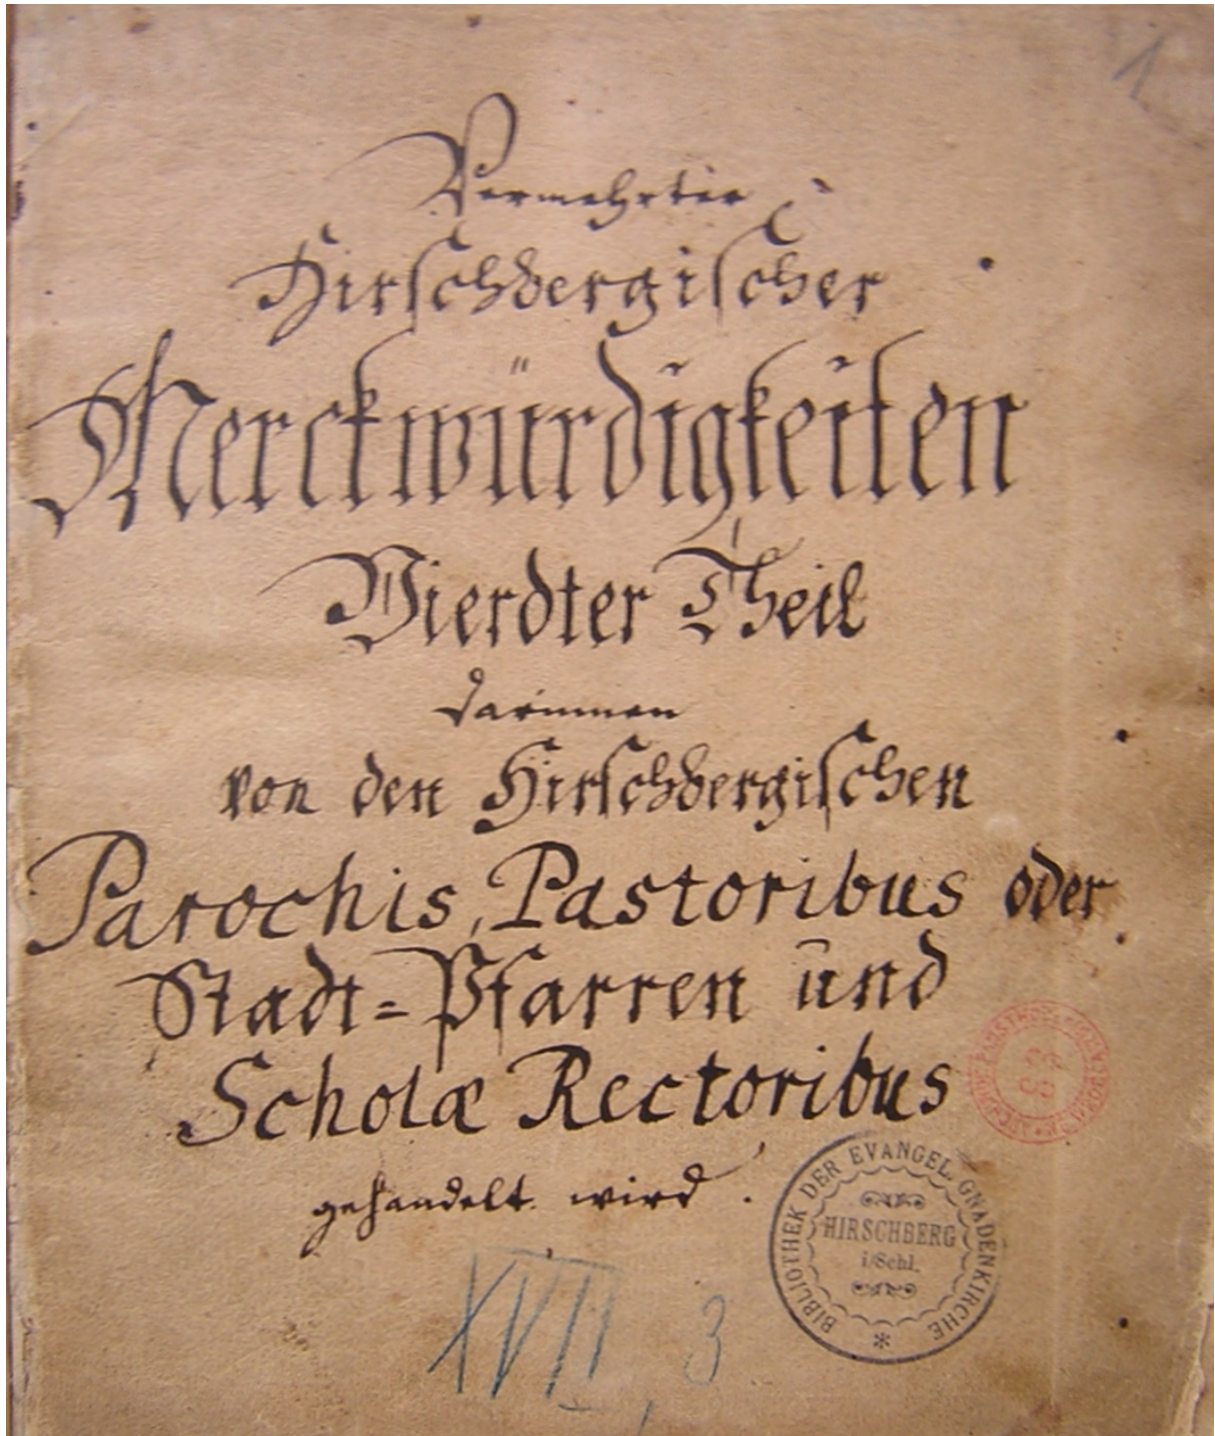 1
Vermehrter
Hirschbergischer
Merckwürdigkeiten
Vierdter Theil
darinnen
von den Hirschbergischen
Parochis, Pastoribus oder
Stadt=Pfarren und
Scholæ Rectoribus
gehandelt wird.
BIBLIOTHEK DER EVANGEL. GNADENKIRCHE
HIRSCHBERG
i/Schl.
XVII, 3